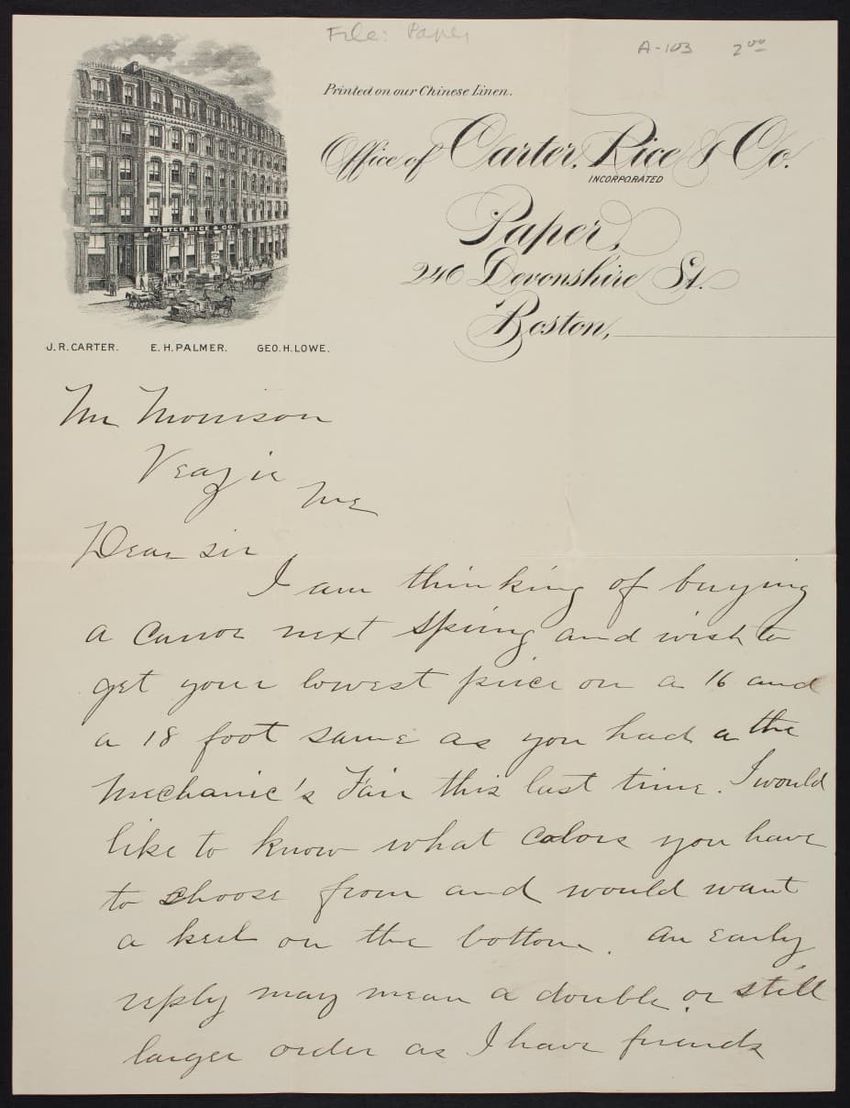 File: Paper
A-103 2⁰⁰
Printed on our Chinese Linen.
Office of Carter, Rice & Co.
INCORPORATED
Paper,
246 Devonshire St.
Boston,
CARTER, RICE & CO.
J. R. CARTER. E. H. PALMER. GEO. H. LOWE.
Mr Morrison
Veazie
Me
Dear sir
I am thinking of buying
a canoe next spring and wish to
get your lowest price on a 16 and
a 18 foot same as you had a the
Mechanic's Fair this last time. I would
like to know what colors you have
to choose from and would want
a keel on the bottom. An early
reply may mean a double or still
larger order as I have friends